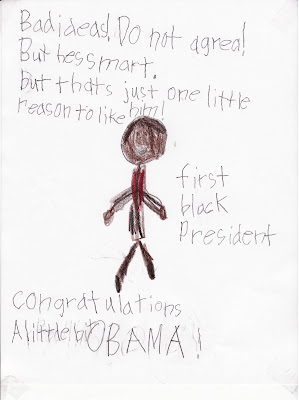 Bad ideas! Do not agrea!
But hes smart.
but thats just one little
reason to like him!
first
black
President
congratulations
A little bit OBAMA!